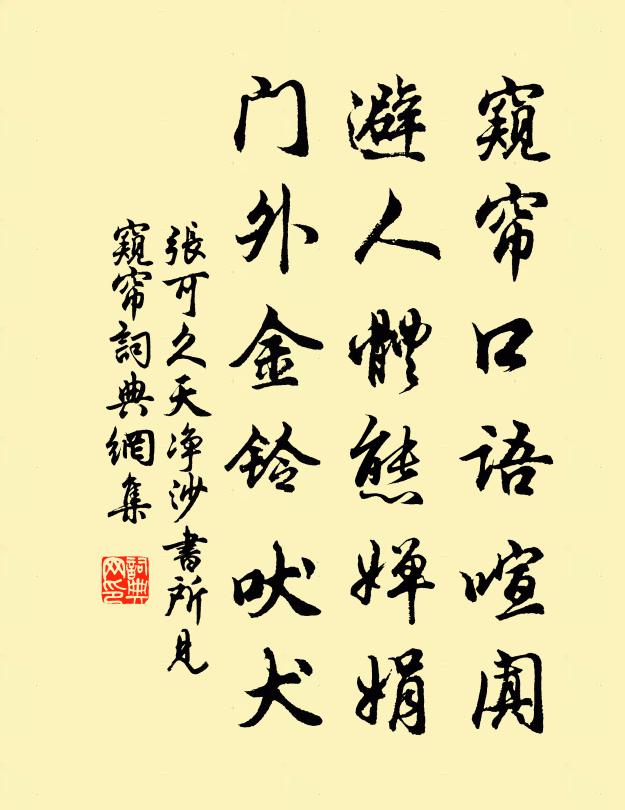 窺帘口語喧闐
避人體態嬋娟
門外金鈴吠犬
張可久天净沙書所見
窺帘詞典網集
詞典网印